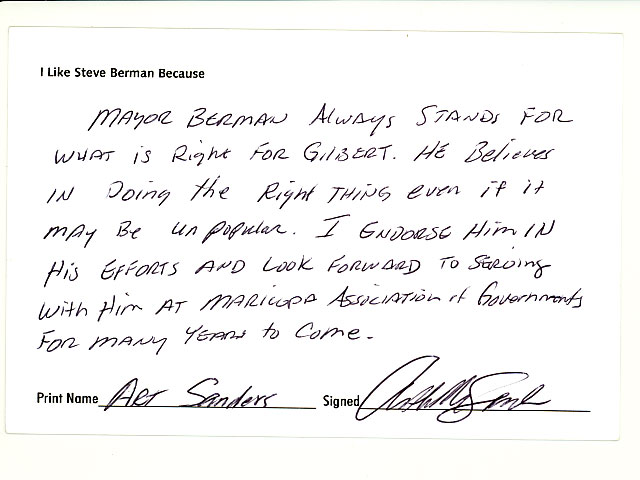 I Like Steve Berman Because
MAYOR BERMAN Always STANDS FOR
WHAT is Right FOR GILBERT. HE Believes
IN Doing the Right THING even if it
MAY Be unpopular. I ENDORSE Him IN
His EFFORTS AND LOOK FORWARD TO SERVING
With Him AT MARICOPA ASSOCIATION of Governments
FOR MANY YEARS to Come.
Print Name ART Sanders Signed